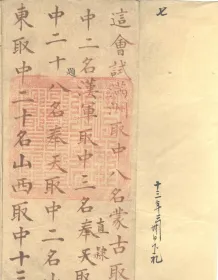 七
這會試滿洲取中八名蒙古取
中二名漢軍取中三名奉天取
直隸
中二十八名奉天取中二名山
題
東取中二十名山西取中十三